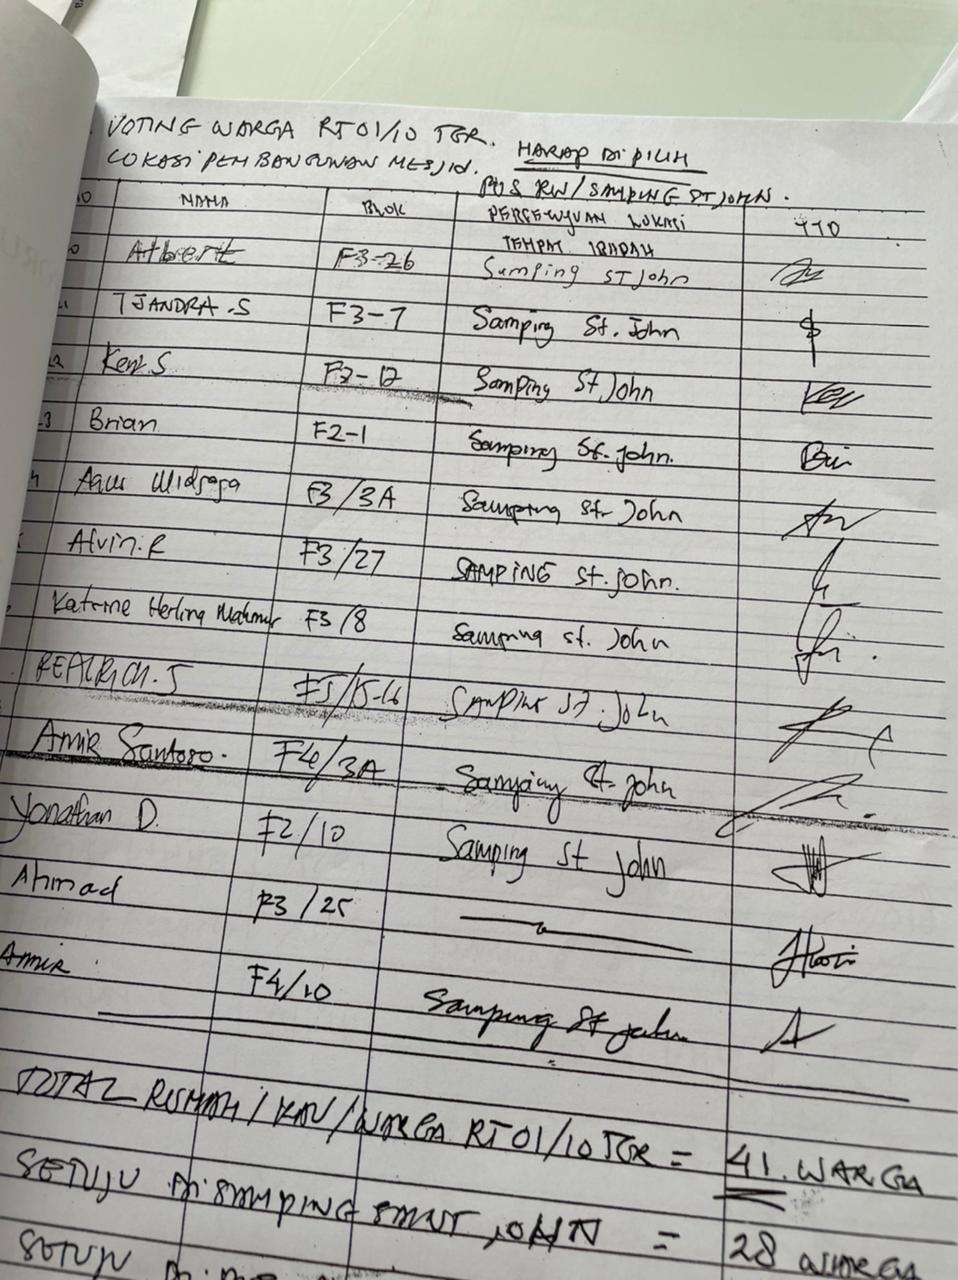 VOTING WARGA RT01/10 TGR.
LOKASI PEMBANGUNAN MESJID. HARAP DIPILIH
POS RW/SAMPING ST JOHN.
NAMA BLOK PERSETUJUAN LOKASI TTD
TEMPAT IBADAH
Albert F3-26 Samping ST John
TJANDRA.S F3-7 Samping St. John
Ken.S F2-12 Samping St John Ken
3 Brian F2-1 Samping St. john. Bri
Agus Widjaja F3/3A Samping St. John
Alvin.R F3/27 SAMPING St.john.
Katrine Herlina F3/8 Samping st. John
15-16 SAMPING ST. John
Amir Santoso. F4/3A Samping St. john
Yonathan D. F2/10 Samping St John
Ahmad F3/25
Amir F4/10 Samping St john.
TOTAL RUMAH/KAV/WARGA RT01/10 TGR = 41. WARGA
SETUJU DI SAMPING SAINT JOHN = 28 WARGA
SETUJU